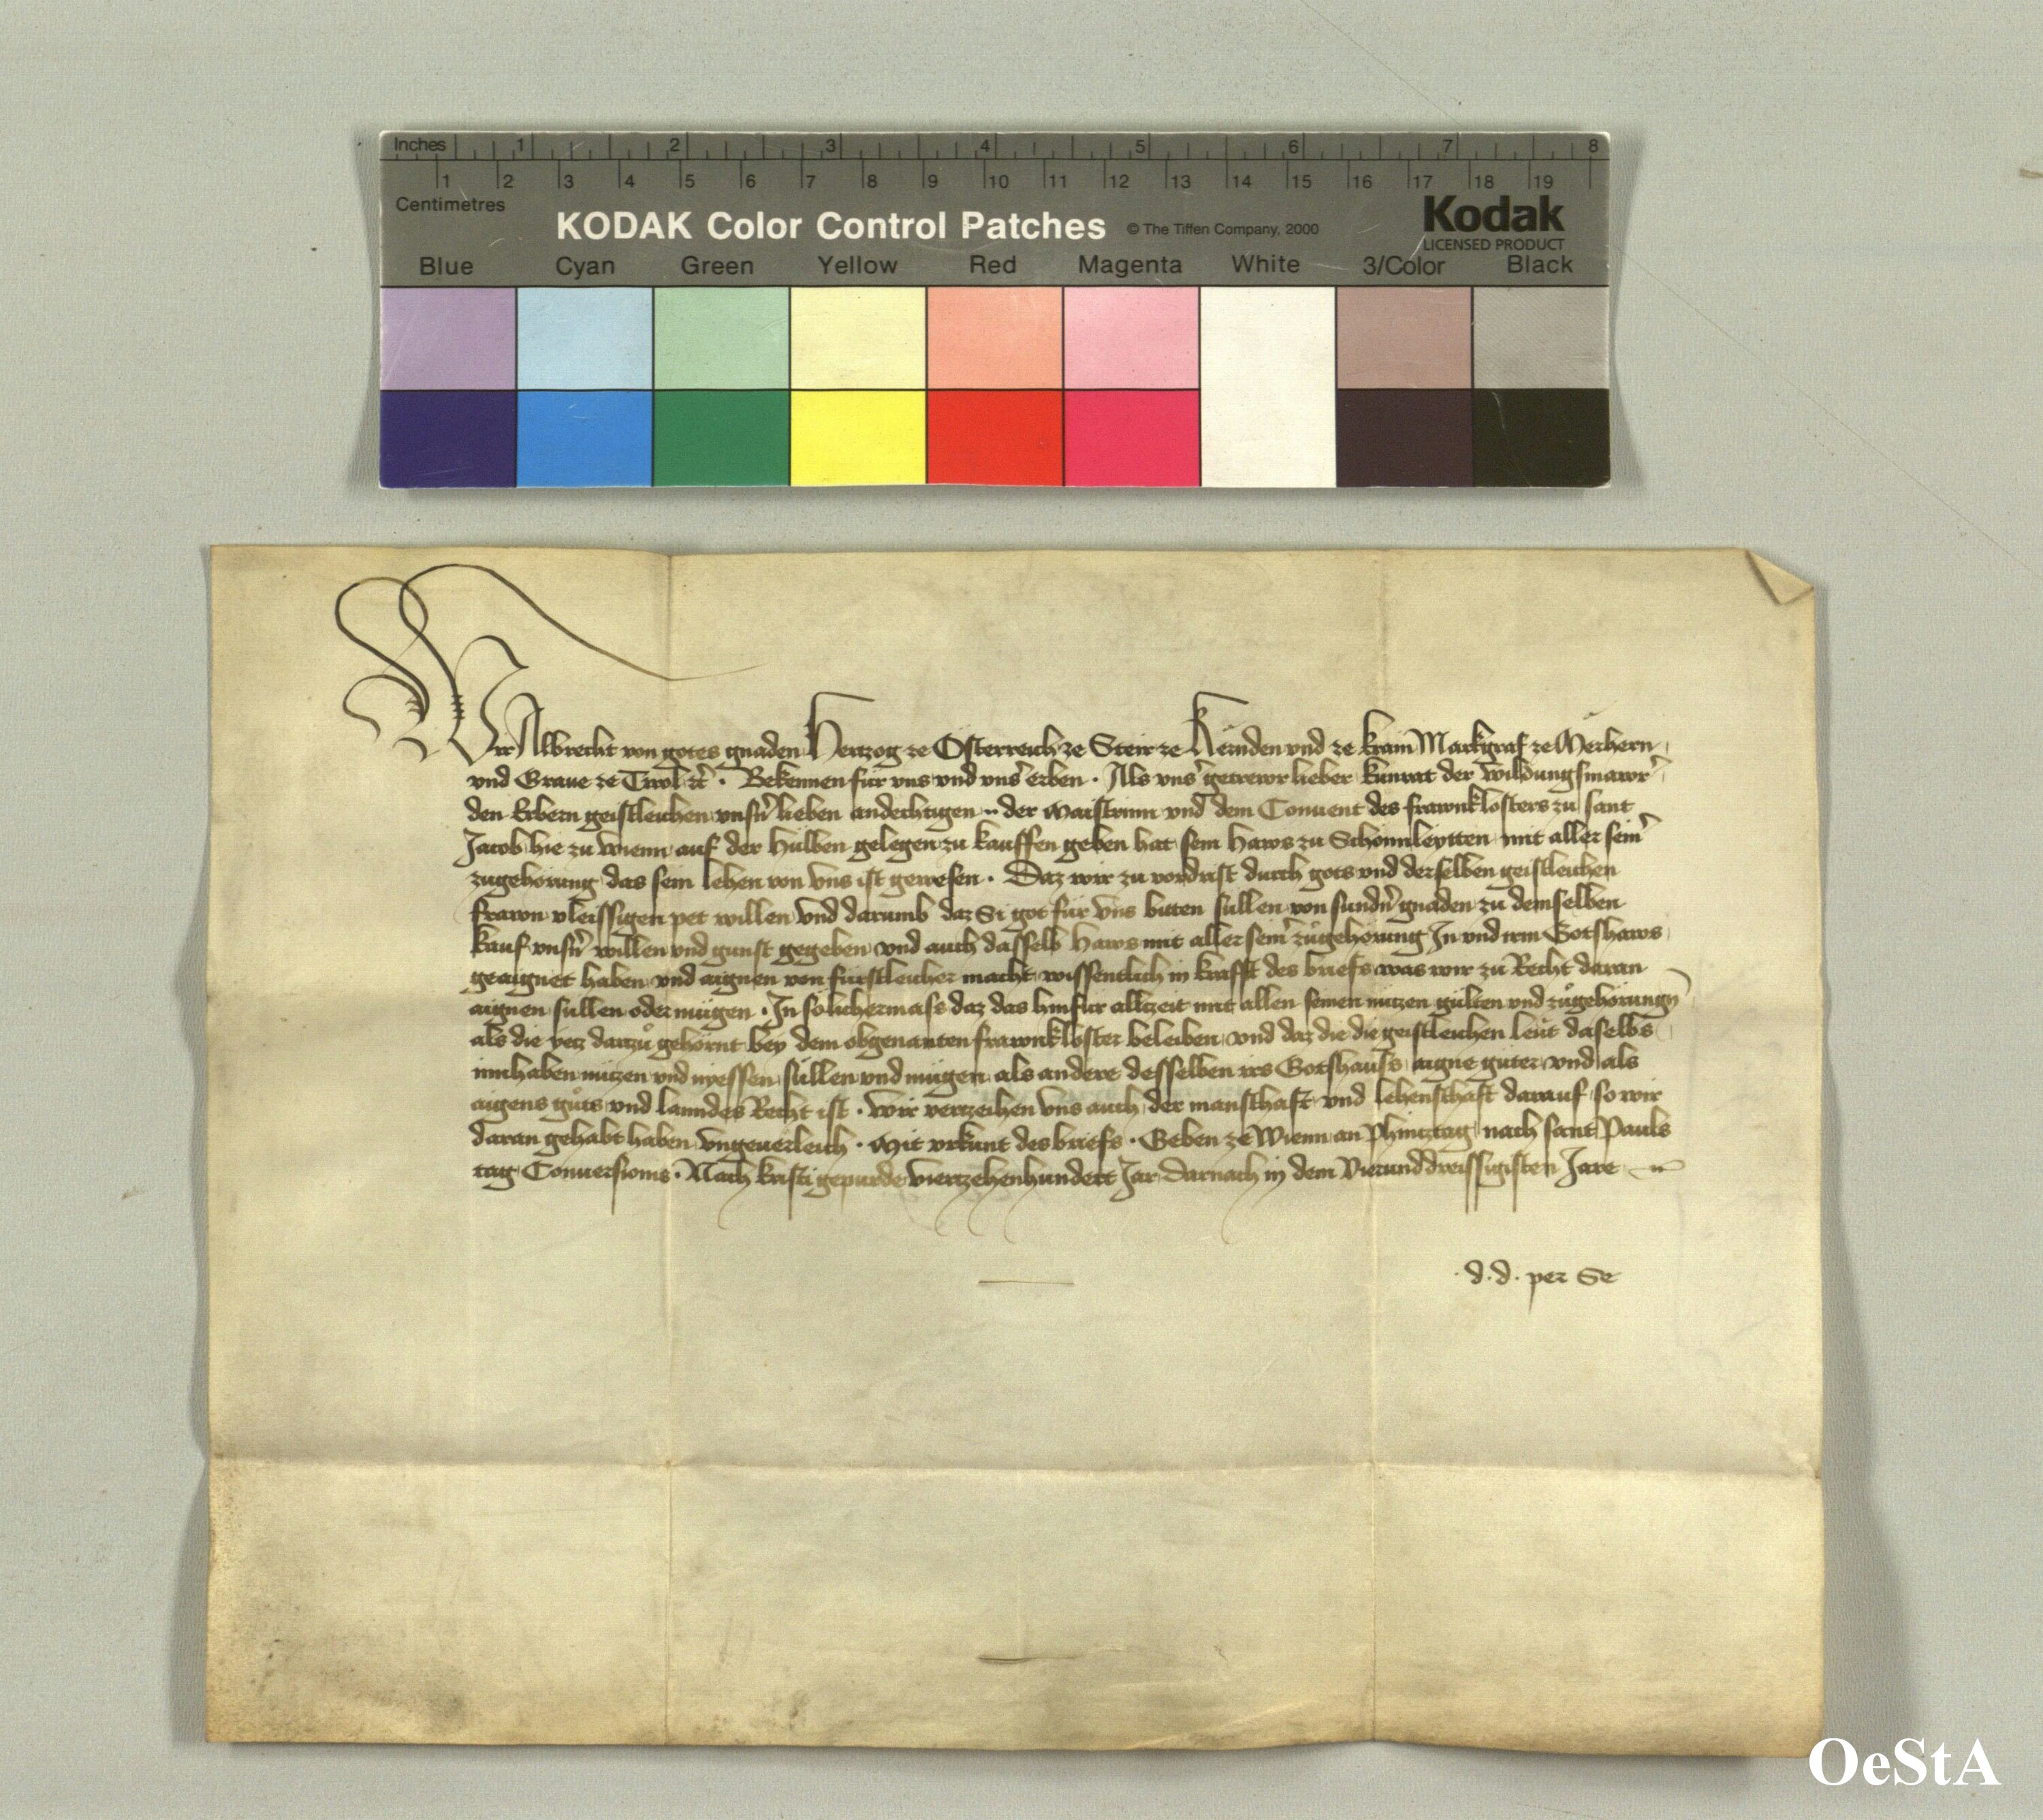 Inches 1 2 3 4 5 6 7 8
1 2 3 4 5 6 7 8 9 10 11 12 13 14 15 16 17 18 19
Centimetres
KODAK Color Control Patches © The Tiffen Company, 2000 Kodak
LICENSED PRODUCT
Blue Cyan Green Yellow Red Magenta White 3/Color Black
Wir Albrecht von gotes gnaden Hertzog ze Österreich ze Steir ze Kernden vnd ze Krain Markgraf ze Merhern
vnd Graue ze Tirol etc. Bekennen für vns vnd vnser erben. Als vnser getrewr lieber Kunrat der
den Erbern geistleichen vnsern lieben andechtigen .. der Maistrinn vnd dem Conuent des frawnklosters zu sant
Jacob hie zu Wienn auf der Hülben gelegen zu kauffen geben hat sein Haws zu Schonnleytten mit aller seiner
zugehorung das sein lehen von vns ist gewesen. Daz wir zu vordrist durch gots vnd derselben geistleichen
frawn vleissigen pet willen vnd darumb daz Si got für vns bitten sullen von sundern gnaden zu demselben
kauf vnsern willen vnd gunst gegeben vnd auch dasselb Haws mit aller seiner zůgehörung In vnd irm Gotshaws
geaignet haben vnd aignen von fürstleicher macht wissentlich in krafft des briefs was wir zu Recht daran
aignen süllen oder mügen. In solichermass daz das hinfür allzeit mit allen seinen nützen gülten vnd zůgehörungen
als die yetz darzů gehörnt bey dem obgenanten frawnkloster beleiben vnd daz die die geistleichen leüt daselbs
innhaben nützen vnd nyessen süllen vnd mügen als andere desselben irs Gotshauss aigne güter vnd als
aigens gůts vnd lanndes Recht ist. Wir verzeihen vns auch der manschaft vnd lehenschaft darauf so wir
daran gehabt haben vngeuerleich. Mit vrkunt des briefs. Geben ze Wienn an Phincztag nach sant Pauls
tag Conuersionis. Nach kristi gepurde vierzehenhundert Jar Darnach in dem Vierunddreissigisten Jare
.d.d. per Se
OeStA